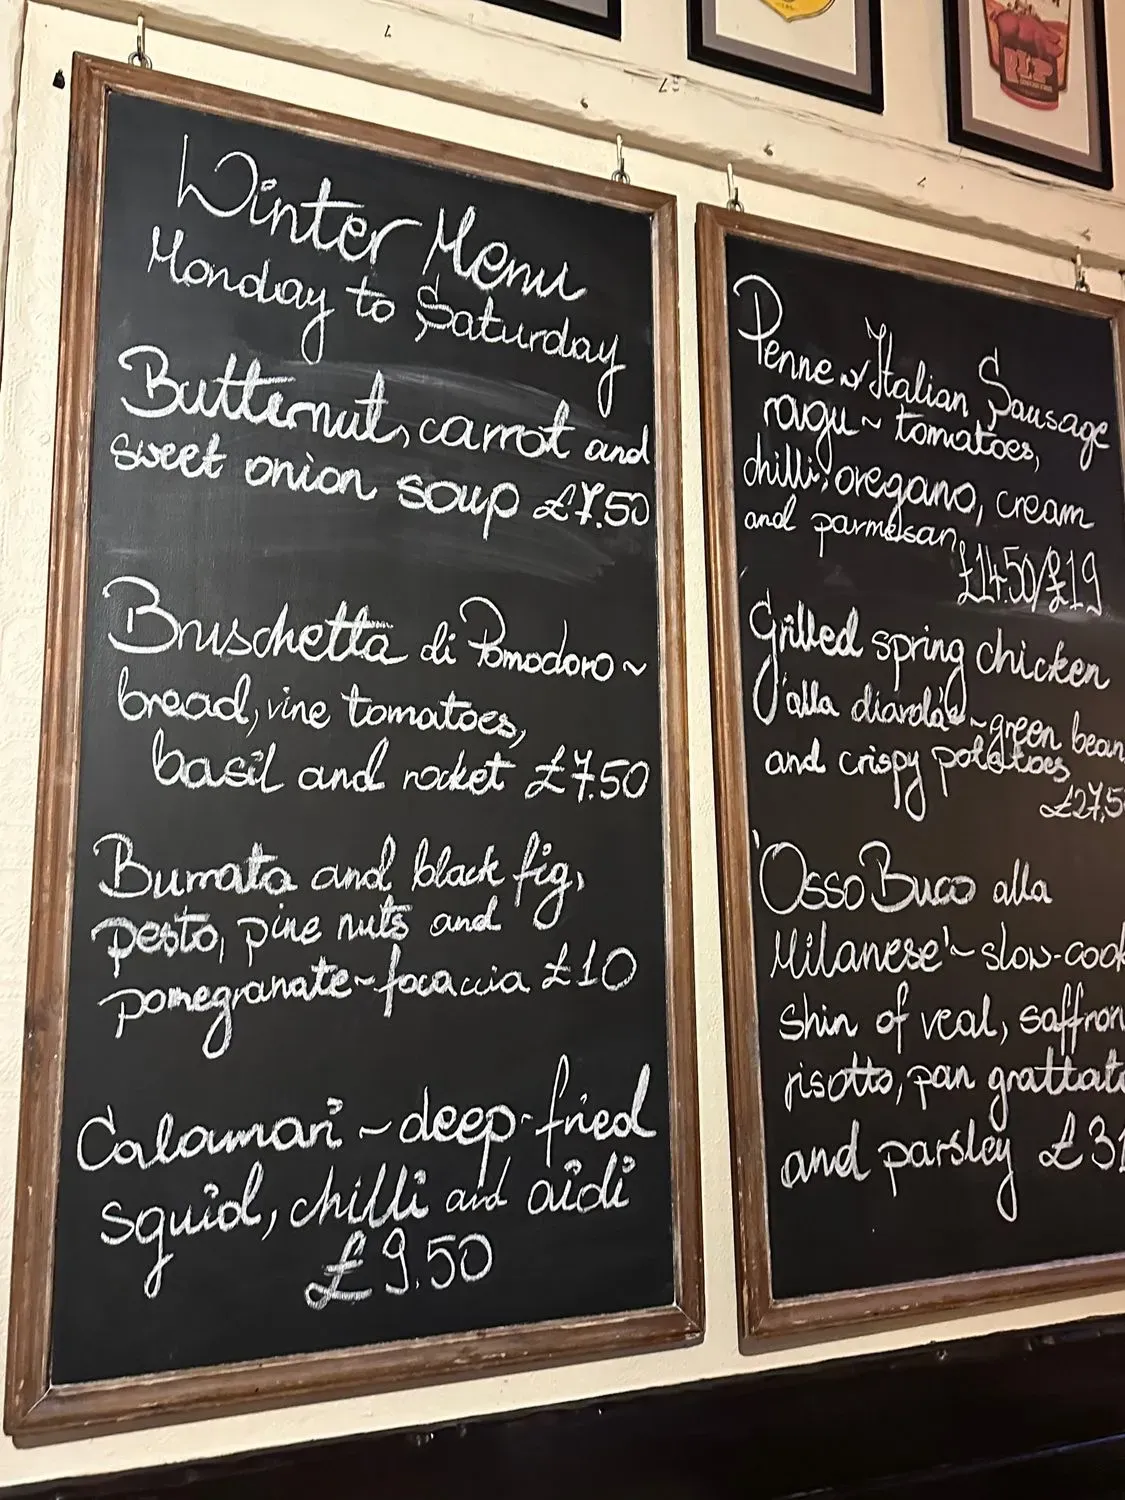 Winter Menu
Monday to Saturday
Butternut, carrot and
sweet onion soup £7.50
Bruschetta di Pomodoro ~
bread, vine tomatoes,
basil and rocket £7.50
Burrata and black fig,
pesto, pine nuts and
pomegranate ~ focaccia £10
Calamari ~ deep-fried
squid, chilli and aioli
£9.50
Penne w Italian Sausage
ragu ~ tomatoes,
chilli, oregano, cream
and parmesan
£14.50/£19
Grilled spring chicken
'alla diavola' ~ green bean
and crispy potatoes
£27.5
'Osso Buco alla
Milanese' ~ slow-cook
shin of veal, saffron
risotto, pan grattat
and parsley £31